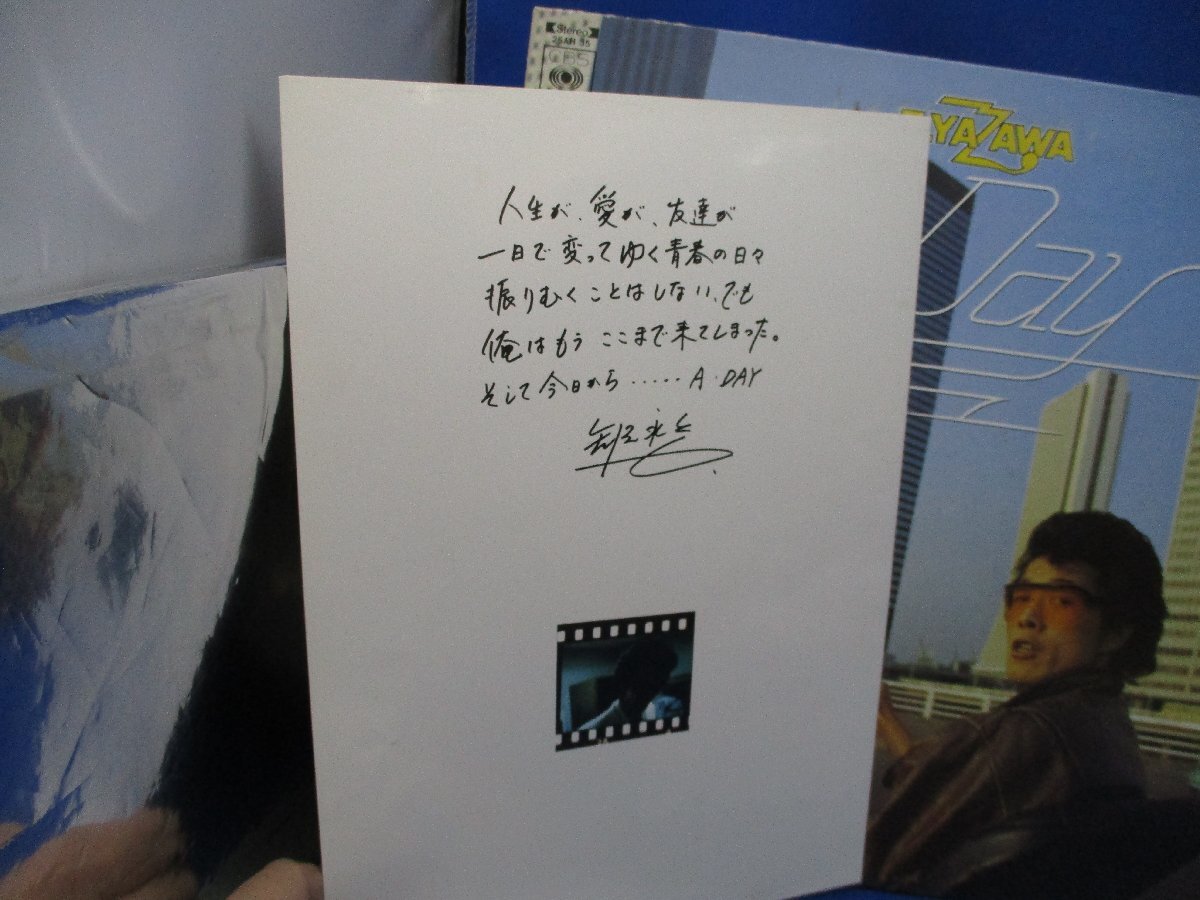 Stereo
CBS
YAZAWA
Day
人生が、愛が、友達が
一日で変ってゆく青春の日々
振りむくことはしない、でも
俺はもう ここまで来てしまった。
そして今日から・・・・・A・DAY
矢沢永吉